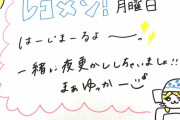 レコメン! 月曜日
はーじまーるよ〜。
一緒に夜更かししちゃいましょ!!
まぁゆっかー